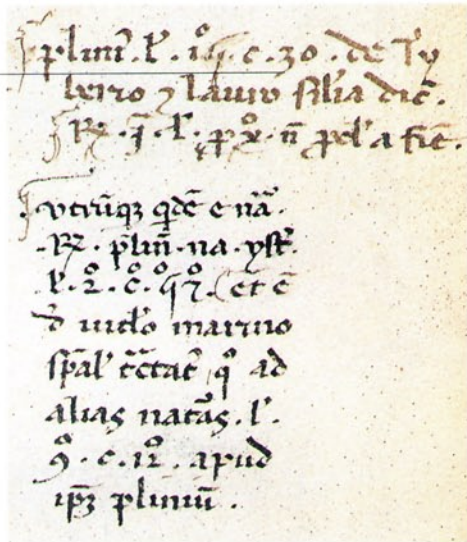 plini᾽. l̕. c. 30. de Ty
berio ⁊ lauro sil̄ia dic̄.
℞. ī. l̕. ñ a fiē.
vtrūqꝫ qdē e nā.
.℞. plin̄. na. yst̄.
l̕. 2°. c°. et ē
d̄ uitl̕o marino
sp̄al̕ t̄ctat̕ q° ad
alias natās. l̕.
9°. c. 12°. apud
ipꝫ pliniū.